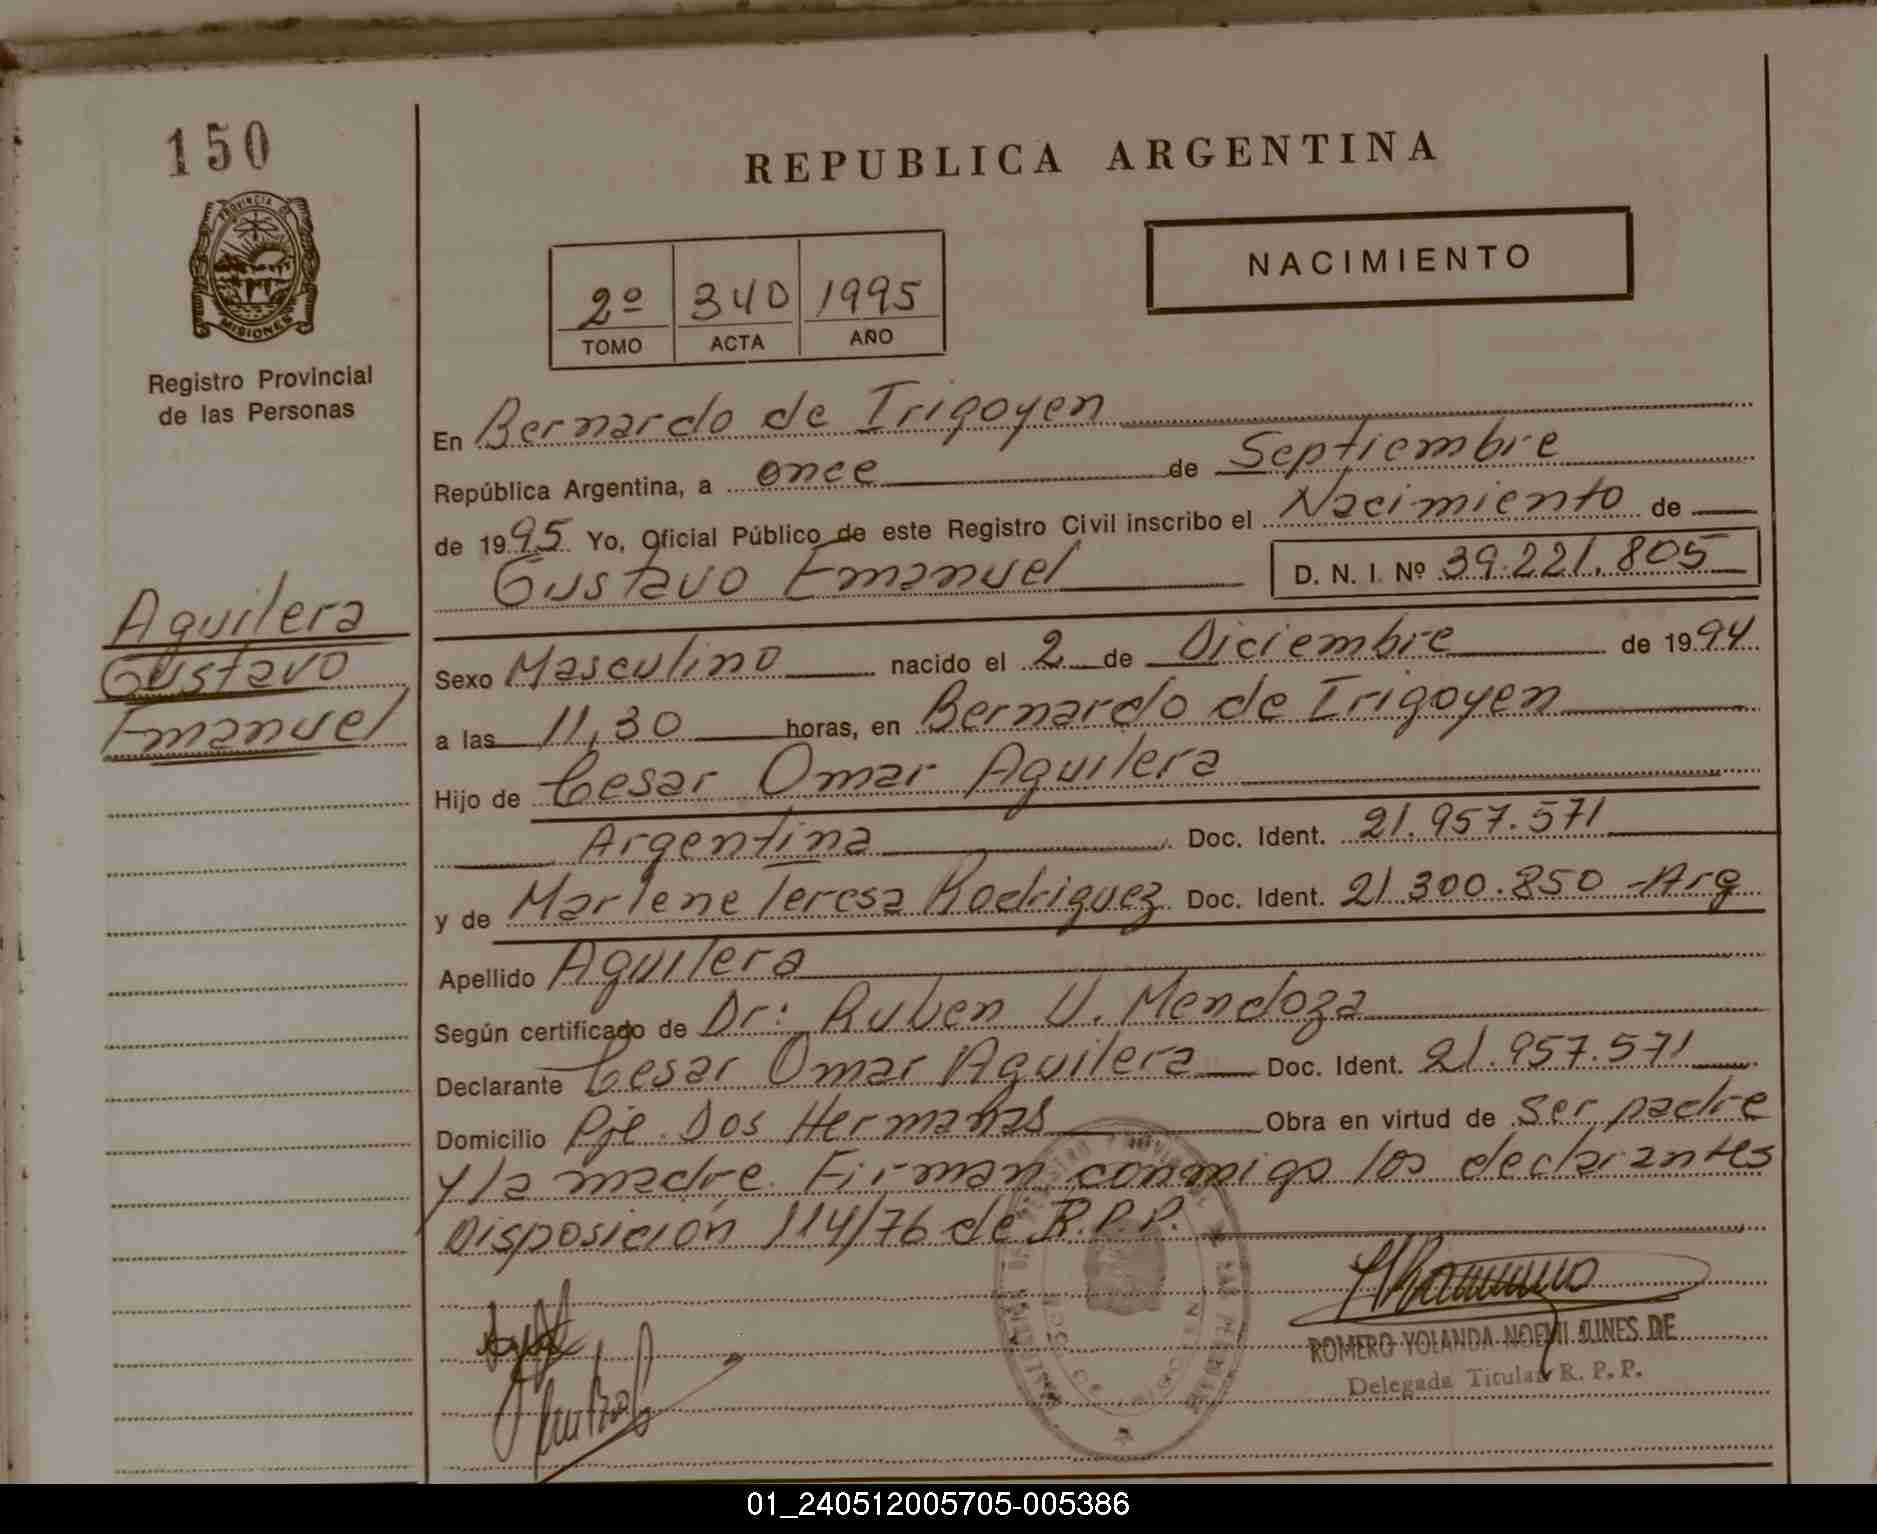 150
REPUBLICA ARGENTINA
PROVINCIA DE
MISIONES
NACIMIENTO
2º 340 1995
TOMO ACTA AÑO
Registro Provincial
de las Personas
En Bernardo de Irigoyen
República Argentina, a once de Septiembre
de 1995 Yo, Oficial Público de este Registro Civil inscribo el Nacimiento de
Gustavo Emanuel D. N. I. Nº 39.221.805
Aguilera
Gustavo
Emanuel
Sexo Masculino nacido el 2 de Diciembre de 1994
a las 11,30 horas, en Bernardo de Irigoyen
Hijo de Cesar Omar Aguilera
Argentina Doc. Ident. 21.957.571
y de Marlene Teresa Rodriguez Doc. Ident. 21.300.850 - Arg
Apellido Aguilera
Según certificado de Dr: Ruben U. Mendoza
Declarante Cesar Omar Aguilera Doc. Ident. 21.957.571
Domicilio Pje. Dos Hermanas Obra en virtud de ser padre
y la madre. Firman conmigo los declarantes
Disposición 114/76 de R.P.P.
ROMERO YOLANDA NOEMI DE
Delegada Titular R. P. P.
01_240512005705-005386